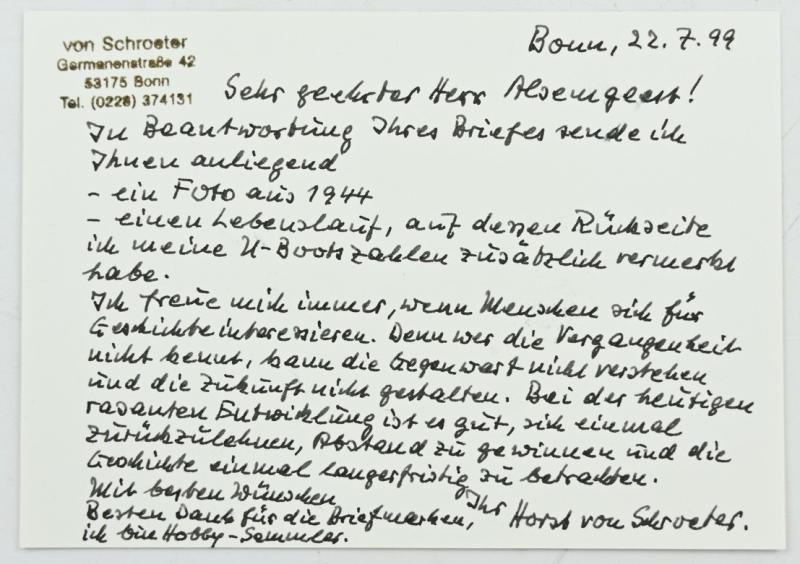 von Schroeter
Germanenstraße 42
53175 Bonn
Tel. (0228) 374131
Bonn, 22.7.99
Sehr geehrter Herr Alsemgeest!
In Beantwortung Ihres Briefes sende ich
Ihnen anliegend
- ein Foto aus 1944
- einen Lebenslauf, auf dessen Rückseite
ich meine U-Bootszahlen zusätzlich vermerkt
habe.
Ich freue mich immer, wenn Menschen sich für
Geschichte interessieren. Denn wer die Vergangenheit
nicht kennt, kann die Gegenwart nicht verstehen
und die Zukunft nicht gestalten. Bei der heutigen
rasanten Entwicklung ist es gut, sich einmal
zurückzulehnen, Abstand zu gewinnen und die
Geschichte einmal langerfristig zu betrachten.
Mit besten Wünschen
Ihr Horst von Schroeter.
Besten Dank für die Briefmarken,
ich bin Hobby-Sammler.